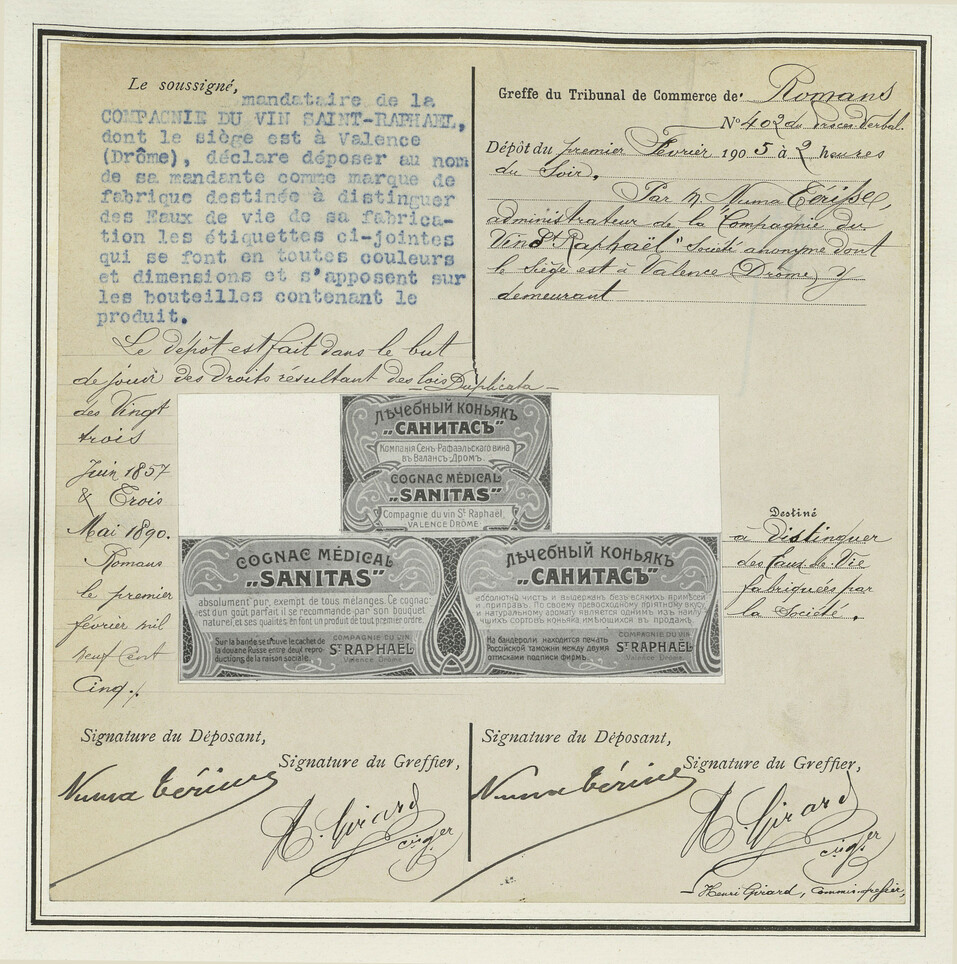 Le soussigné,
mandataire de la
COMPAGNIE DU VIN SAINT-RAPHAEL,
dont le siège est à Valence
(Drôme), déclare déposer au nom
de sa mandante comme marque de
fabrique destinée à distinguer
des Eaux de vie de sa fabrica-
tion les étiquettes ci-jointes
qui se font en toutes couleurs
et dimensions et s'apposent sur
les bouteilles contenant le
produit.
Le dépôt est fait dans le but
de jouir des droits résultant des lois
des Vingt
trois
Juin 1857
& Trois
Mai 1890.
Romans
le premier
février mil
neuf cent
Cinq./.
Greffe du Tribunal de Commerce de: Romans
N° 402 du Procès-Verbal.
Dépôt du premier Février 1905 à 2 heures
du Soir,
Par M. Numa
administrateur de la Compagnie du
Vin St Raphaël" Société anonyme dont
le Siège est à Valence (Drôme) y
demeurant
Duplicata
ЛѢЧЕБНЫЙ КОНЬЯКЪ
„САНИТАСЪ"
Компанія Сенъ-Рафаэльскаго вина
въ Валансъ-Дромъ.
COGNAC MÉDICAL
„SANITAS"
Compagnie du vin St Raphaël,
VALENCE DRÔME.
COGNAC MÉDICAL
„SANITAS"
absolument pur, exempt de tous mélanges. Ce cognac
est d'un goût parfait il se recommande par son bouquet
naturel, et ses qualités en font un produit de tout premier ordre.
Sur la bande se trouve le cachet de
la douane Russe entre deux repro-
ductions de la raison sociale.
COMPAGNIE DU VIN
St RAPHAËL
Valence Drôme
ЛѢЧЕБНЫЙ КОНЬЯКЪ
„САНИТАСЪ"
абсолютно чистъ и выдержанъ безъ всякихъ примѣсей
и приправъ. По своему превосходному пріятному вкусу,
и натуральному аромату является однимъ изъ наилу-
чшихъ сортовъ коньяка, имѣющихся въ продажѣ.
На бандероли находится печать
Россійской таможни между двумя
оттисками подписи фирмъ.
COMPAGNIE DU VIN
St RAPHAËL
Valence Drôme
Destiné
à Distinguer
des Eaux-de-Vie
fabriquées par
la Société.
Signature du Déposant,
Signature du Greffier,
Numa
H. Girard
Signature du Déposant,
Signature du Greffier,
Numa
H. Girard
Henri Girard, Commis-greffier,